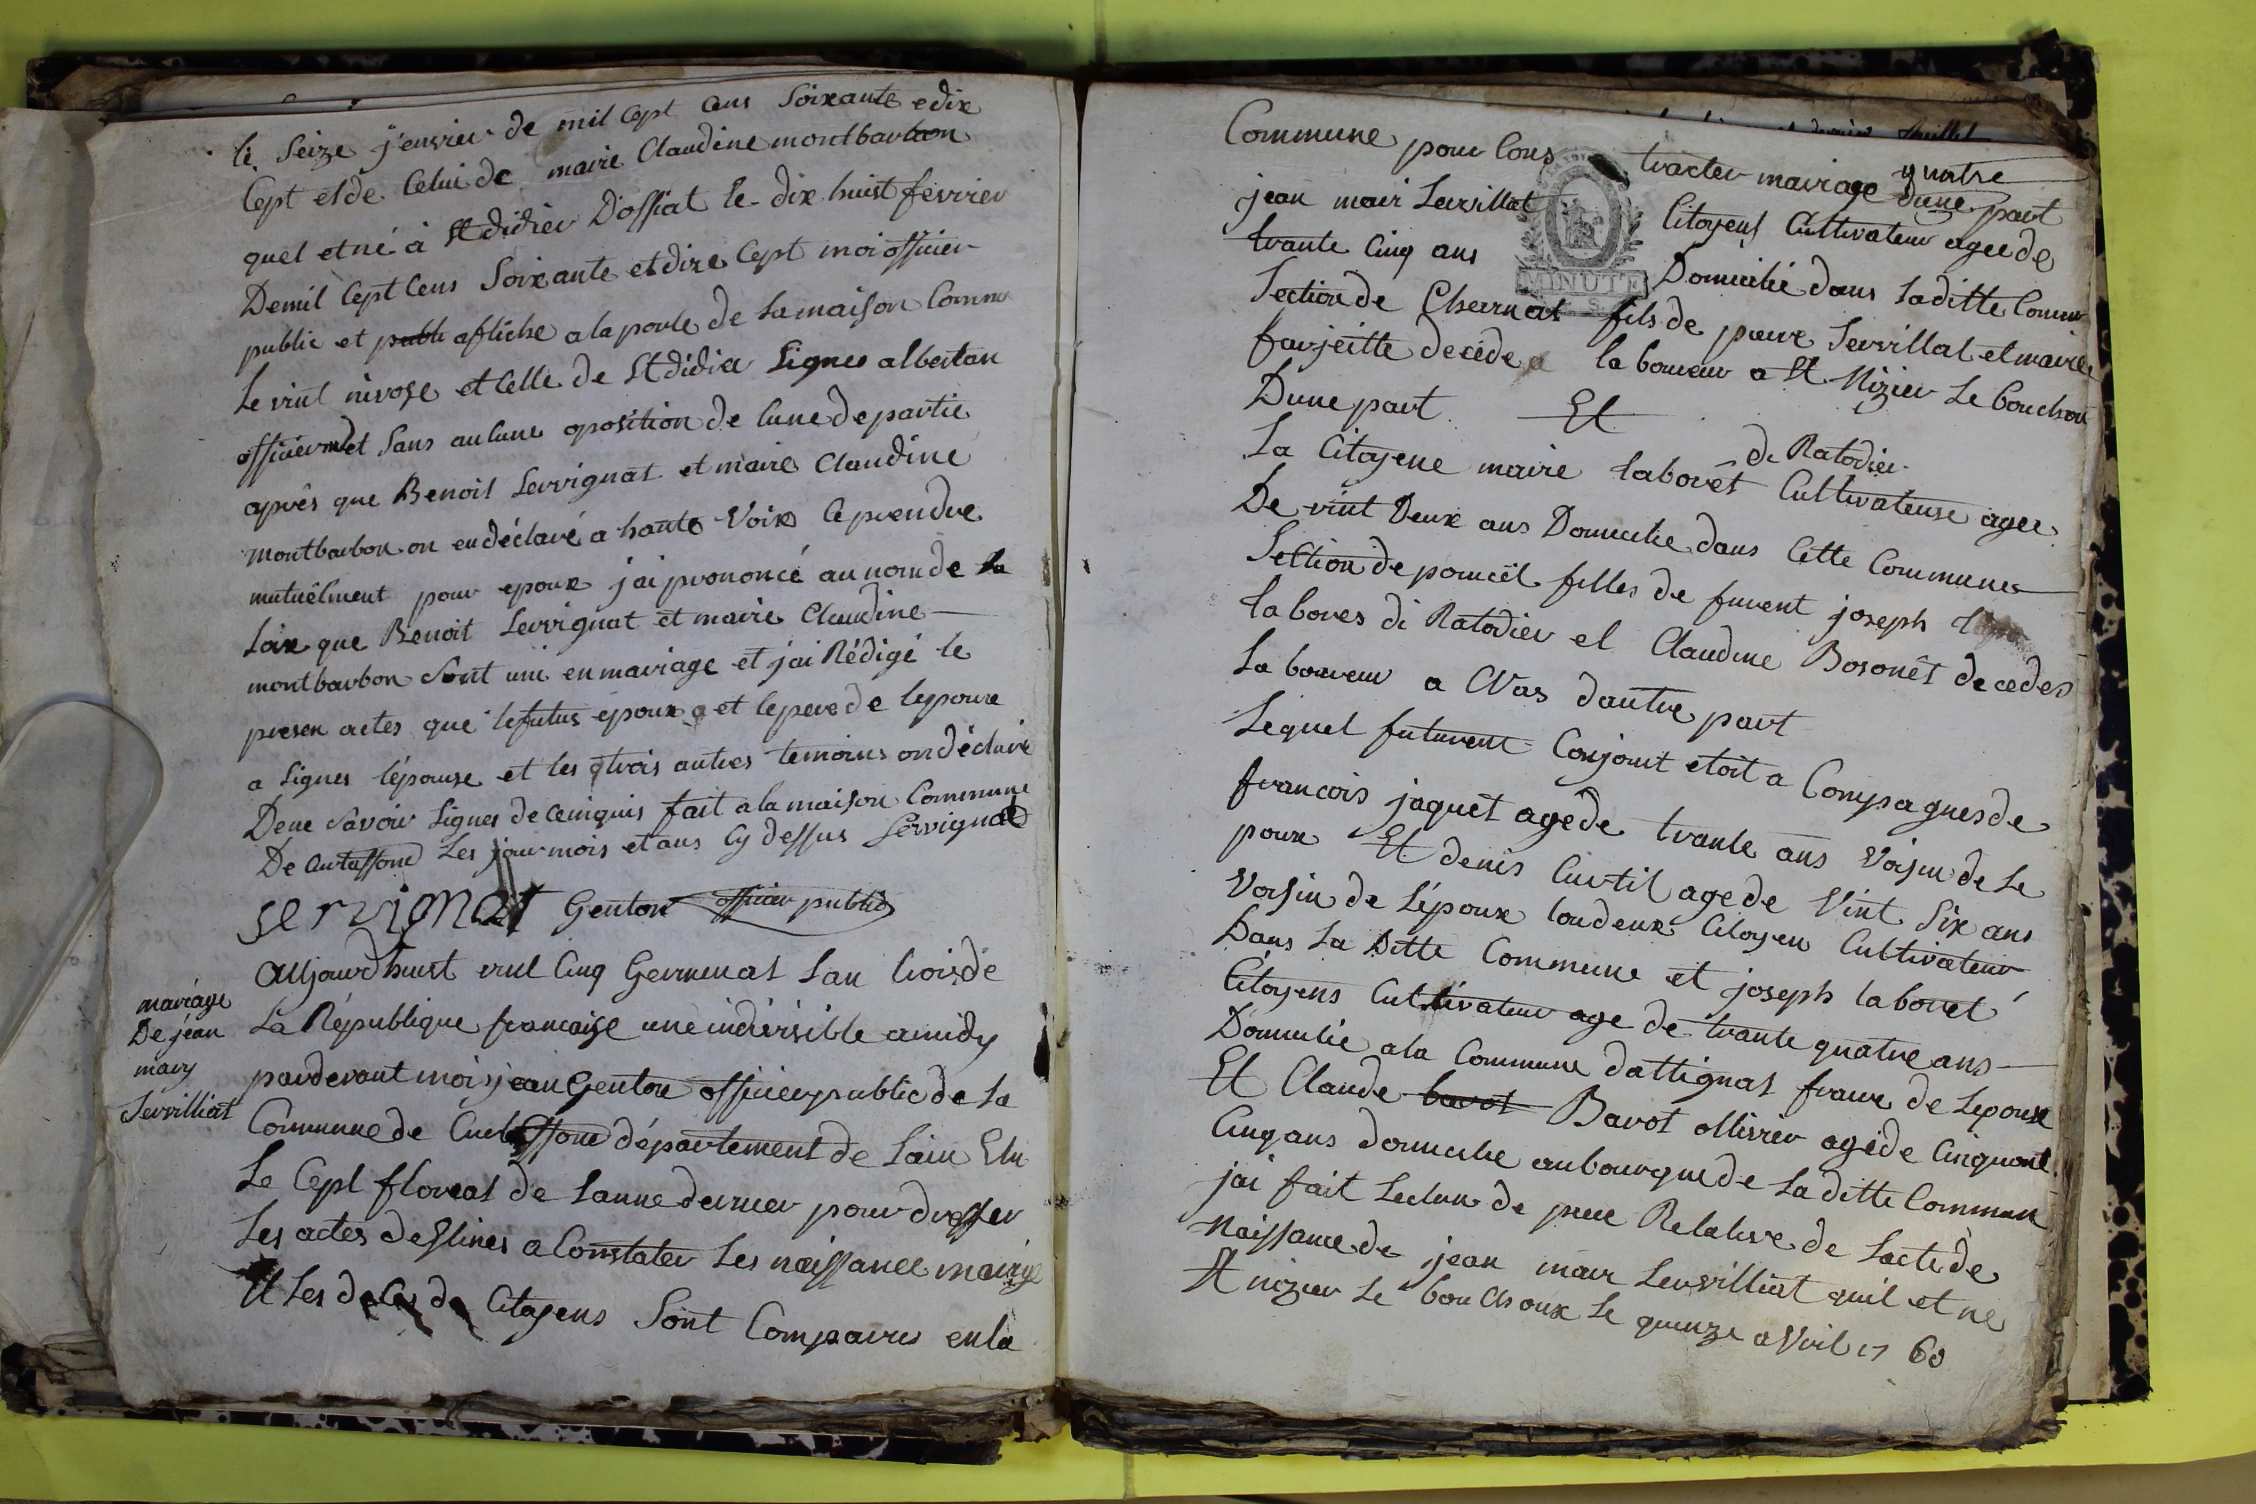 le Seize jenvier de mil cept cens Soixante edix
cept et de Celui de marie Claudine montbarbon
quel et né à St didier Dossiat le dix huist fevrier
Demil cept cens Soixante et dixe cept moi officier
public et publi affiche a la porte de la maison Commu
Le vint nivose et Celle de St didier Signes albertan
officier et Sans aucune oposition de lune de partie
après que Benoit Servignat et marie Claudine
montbarbon on en déclaré a haute Voix ce prendre
mutuêlment pour epoux j'ai prononcé au nom de la
Loix que Benoit Servignat et marie Claudine
montbarbon Sont uni en mariage et j'ai Rédigé le
presen actes que le futus epoux a et le pere de lepouxe
a Signes l'épouse et les trois autres temoins on déclaré
Dene Savoir Signes de ce inquis fait a la maison Commune
De curtaffond Les jour mois et ans cy dessus Servignat
servignat Genton officier public
Aujourdhuist vint Cinq Germinal Lan troisde
La République francaise une indivisible a midy
pardevant moi jean Genton officier public de La
Commune de Curtaffond département de Lain Elu
Le Cept floreal de Lanne dernier pour dresser
Les actes destines a Constater Les naissance mariage
Et Les déces de Citoyens Sont Comparus en la
mariage
De jéan
mary
Servilliat
quatre
Commune pour Cons tracter mairage Dune part
jean mari Servillat Citoyens Cultivateur agee de
trante Cinq ans Domicilié dans Laditte Commu
Section de Charnat fils de pierre Servillat et marie
farjeitte decéde a laboureur a St Nizier Le bouchou
Dune part Et
MINUTE
di Ratodier
La Citoyene marie labovêt Cultivateuse agee
De vint Deux ans Domicilie dans Cette Commune
Section de pomciel filles de furent joseph
laboves di Ratodier et Claudine Bosonêt decedes
Laboureur a Cras dautre part
Lequel futurent Conjoint etoit a Compagnes de
francois jaquet agêde trante ans Voisin de Le
poux Et denis Curtil age de Vint Six ans
Voisin de Lépoux toudeux Citoyen Cultivateur
Dans La Ditte Commune et joseph labovet
Citoyens Cultivateur age de trante quatre ans
Domicilié a la Commune dattignat fraire de Lepouse
Et Claude bavot Bavot ollivier agéde Cinquant
Cinq ans domicilie au bourgue de Laditte Commun
j'ai fait Lecture de piece Relative de Lacte de
Naissance de jean marie Servilliat quil et ne
St nizier Le bouchoux Le quinze aVril 17 60